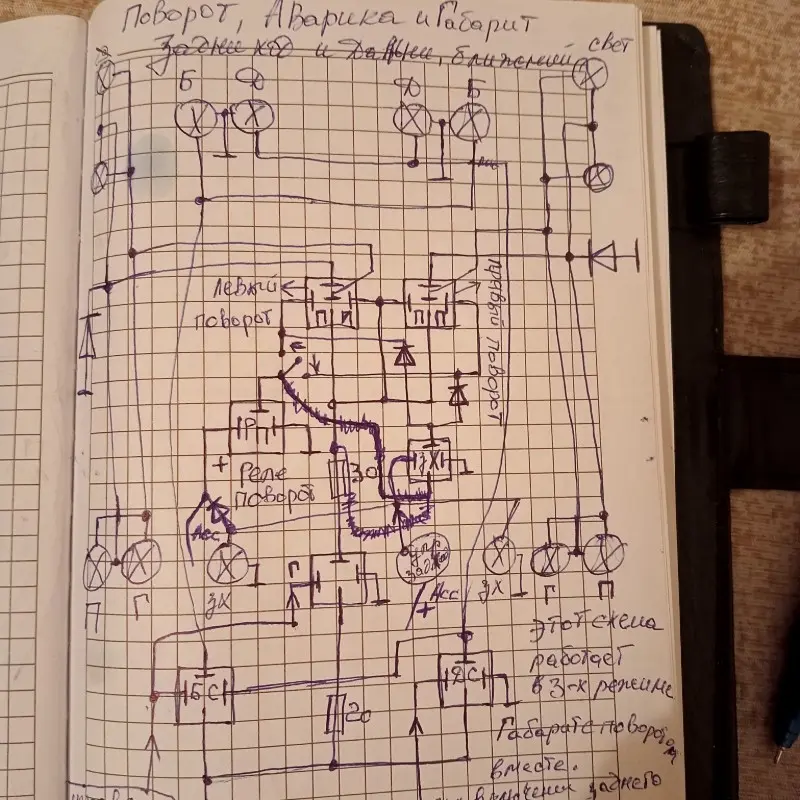 Поворот, Аварика и Габарит
Задний ход и Дальни, ближений свет
Б Ф Ф Б
левый
поворот
П П
П П
правый поворот
РП
+
Реле
поворот
30
ЗХ
Асс
упр
задхой
Г
+ Асс
П Г ЗХ
ЗХ Г П
БС
ДС
20
этот схема
работает
в 3-х режиме
Габарите поворот
вместе.
включении заднего